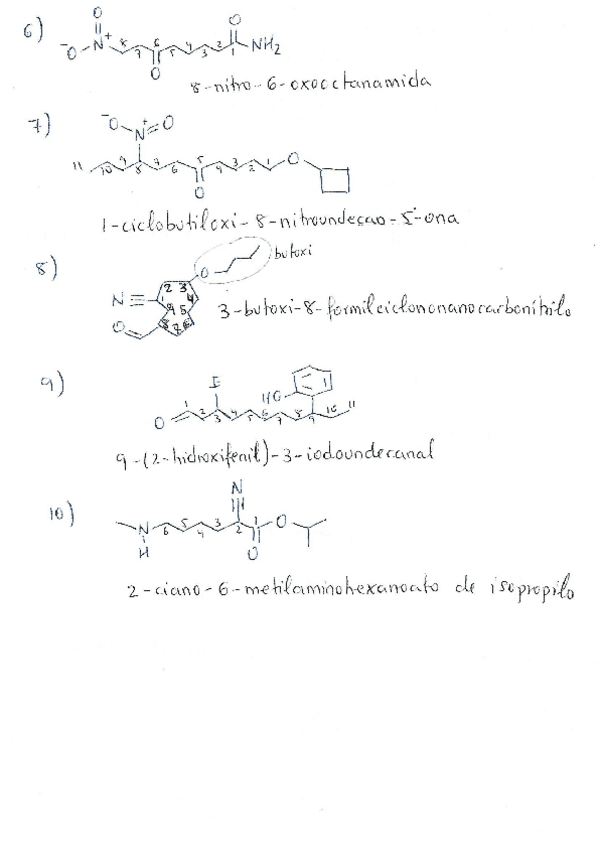 6)
O
⁻O N⁺ 8 7 6 5 4 3 2 1 NH2
O
O
8-nitro-6-oxooctanamida
7)
⁻O N⁺ O
11 10 9 8 7 6 5 4 3 2 1 O
O
1-ciclobutiloxi-8-nitroundecao-5-ona
8)
O butoxi
N 1 2 3 4 5 6 7 8 9
O
3-butoxi-8-formilciclononanocarbonitrilo
9)
I HO
O 1 2 3 4 5 6 7 8 9 10 11
9-(2-hidroxifenil)-3-iodoundecanal
10)
N
N 6 5 4 3 2 1 O
H O
2-ciano-6-metilaminohexanoato de isopropilo